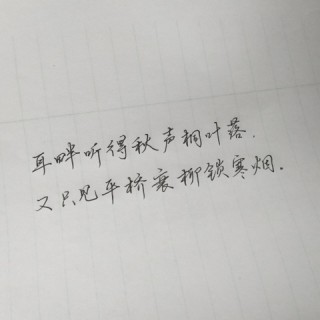 耳畔听得秋声桐叶落.
又只见平桥衰柳锁寒烟.